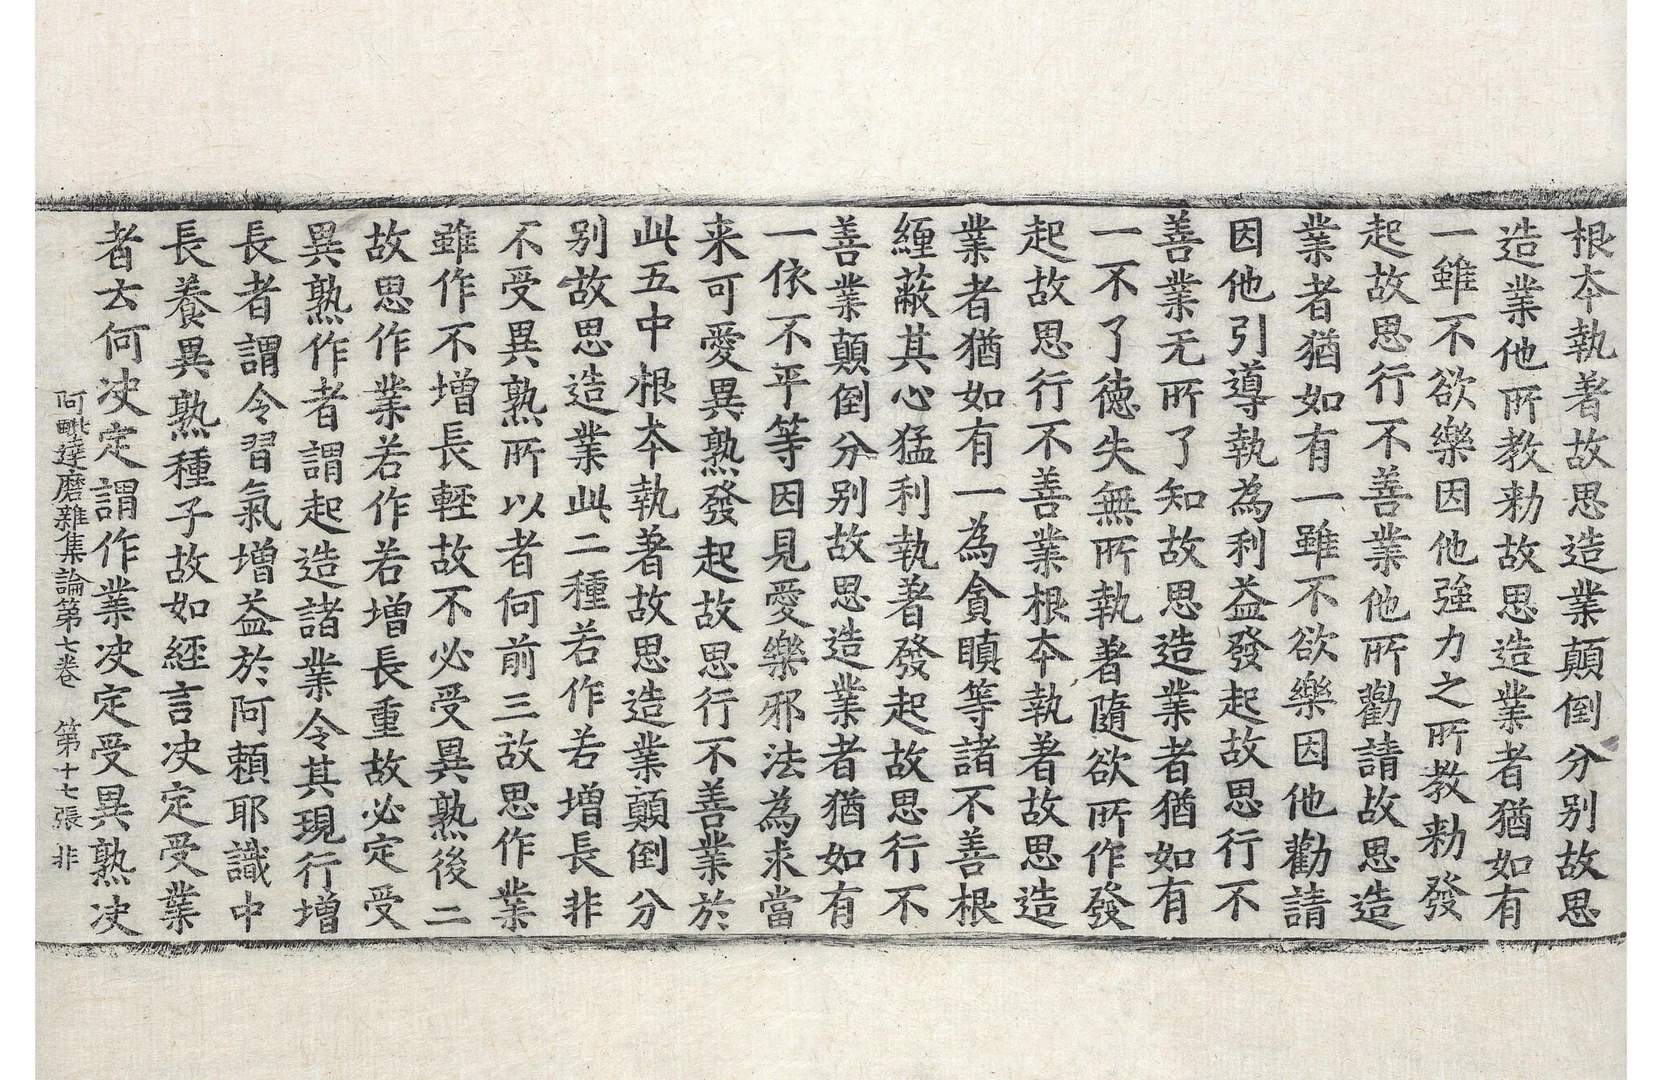 根本執著故思造業顛倒分別故思
造業他所教勑故思造業者猶如有
一雖不欲樂因他強力之所教勑發
起故思行不善業他所勸請故思造
業者猶如有一雖不欲樂因他勸請
因他引導執為利益發起故思行不
善業无所了知故思造業者猶如有
一不了德失無所執著隨欲所作發
起故思行不善業根本執著故思造
業者猶如有一為貪瞋等諸不善根
纏蔽其心猛利執著發起故思行不
善業顛倒分別故思造業者猶如有
一依不平等因見愛樂邪法為求當
来可愛異熟發起故思行不善業於
此五中根本執著故思造業顛倒分
別故思造業此二種若作若增長非
不受異熟所以者何前三故思作業
雖作不增長輕故不必受異熟後二
故思作業若作若增長重故必定受
異熟作者謂起造諸業令其現行增
長者謂令習氣增益於阿頼耶識中
長養異熟種子故如經言决定受業
者云何决定謂作業决定受異熟决
阿毗達磨雜集論第七卷 第十七張 非